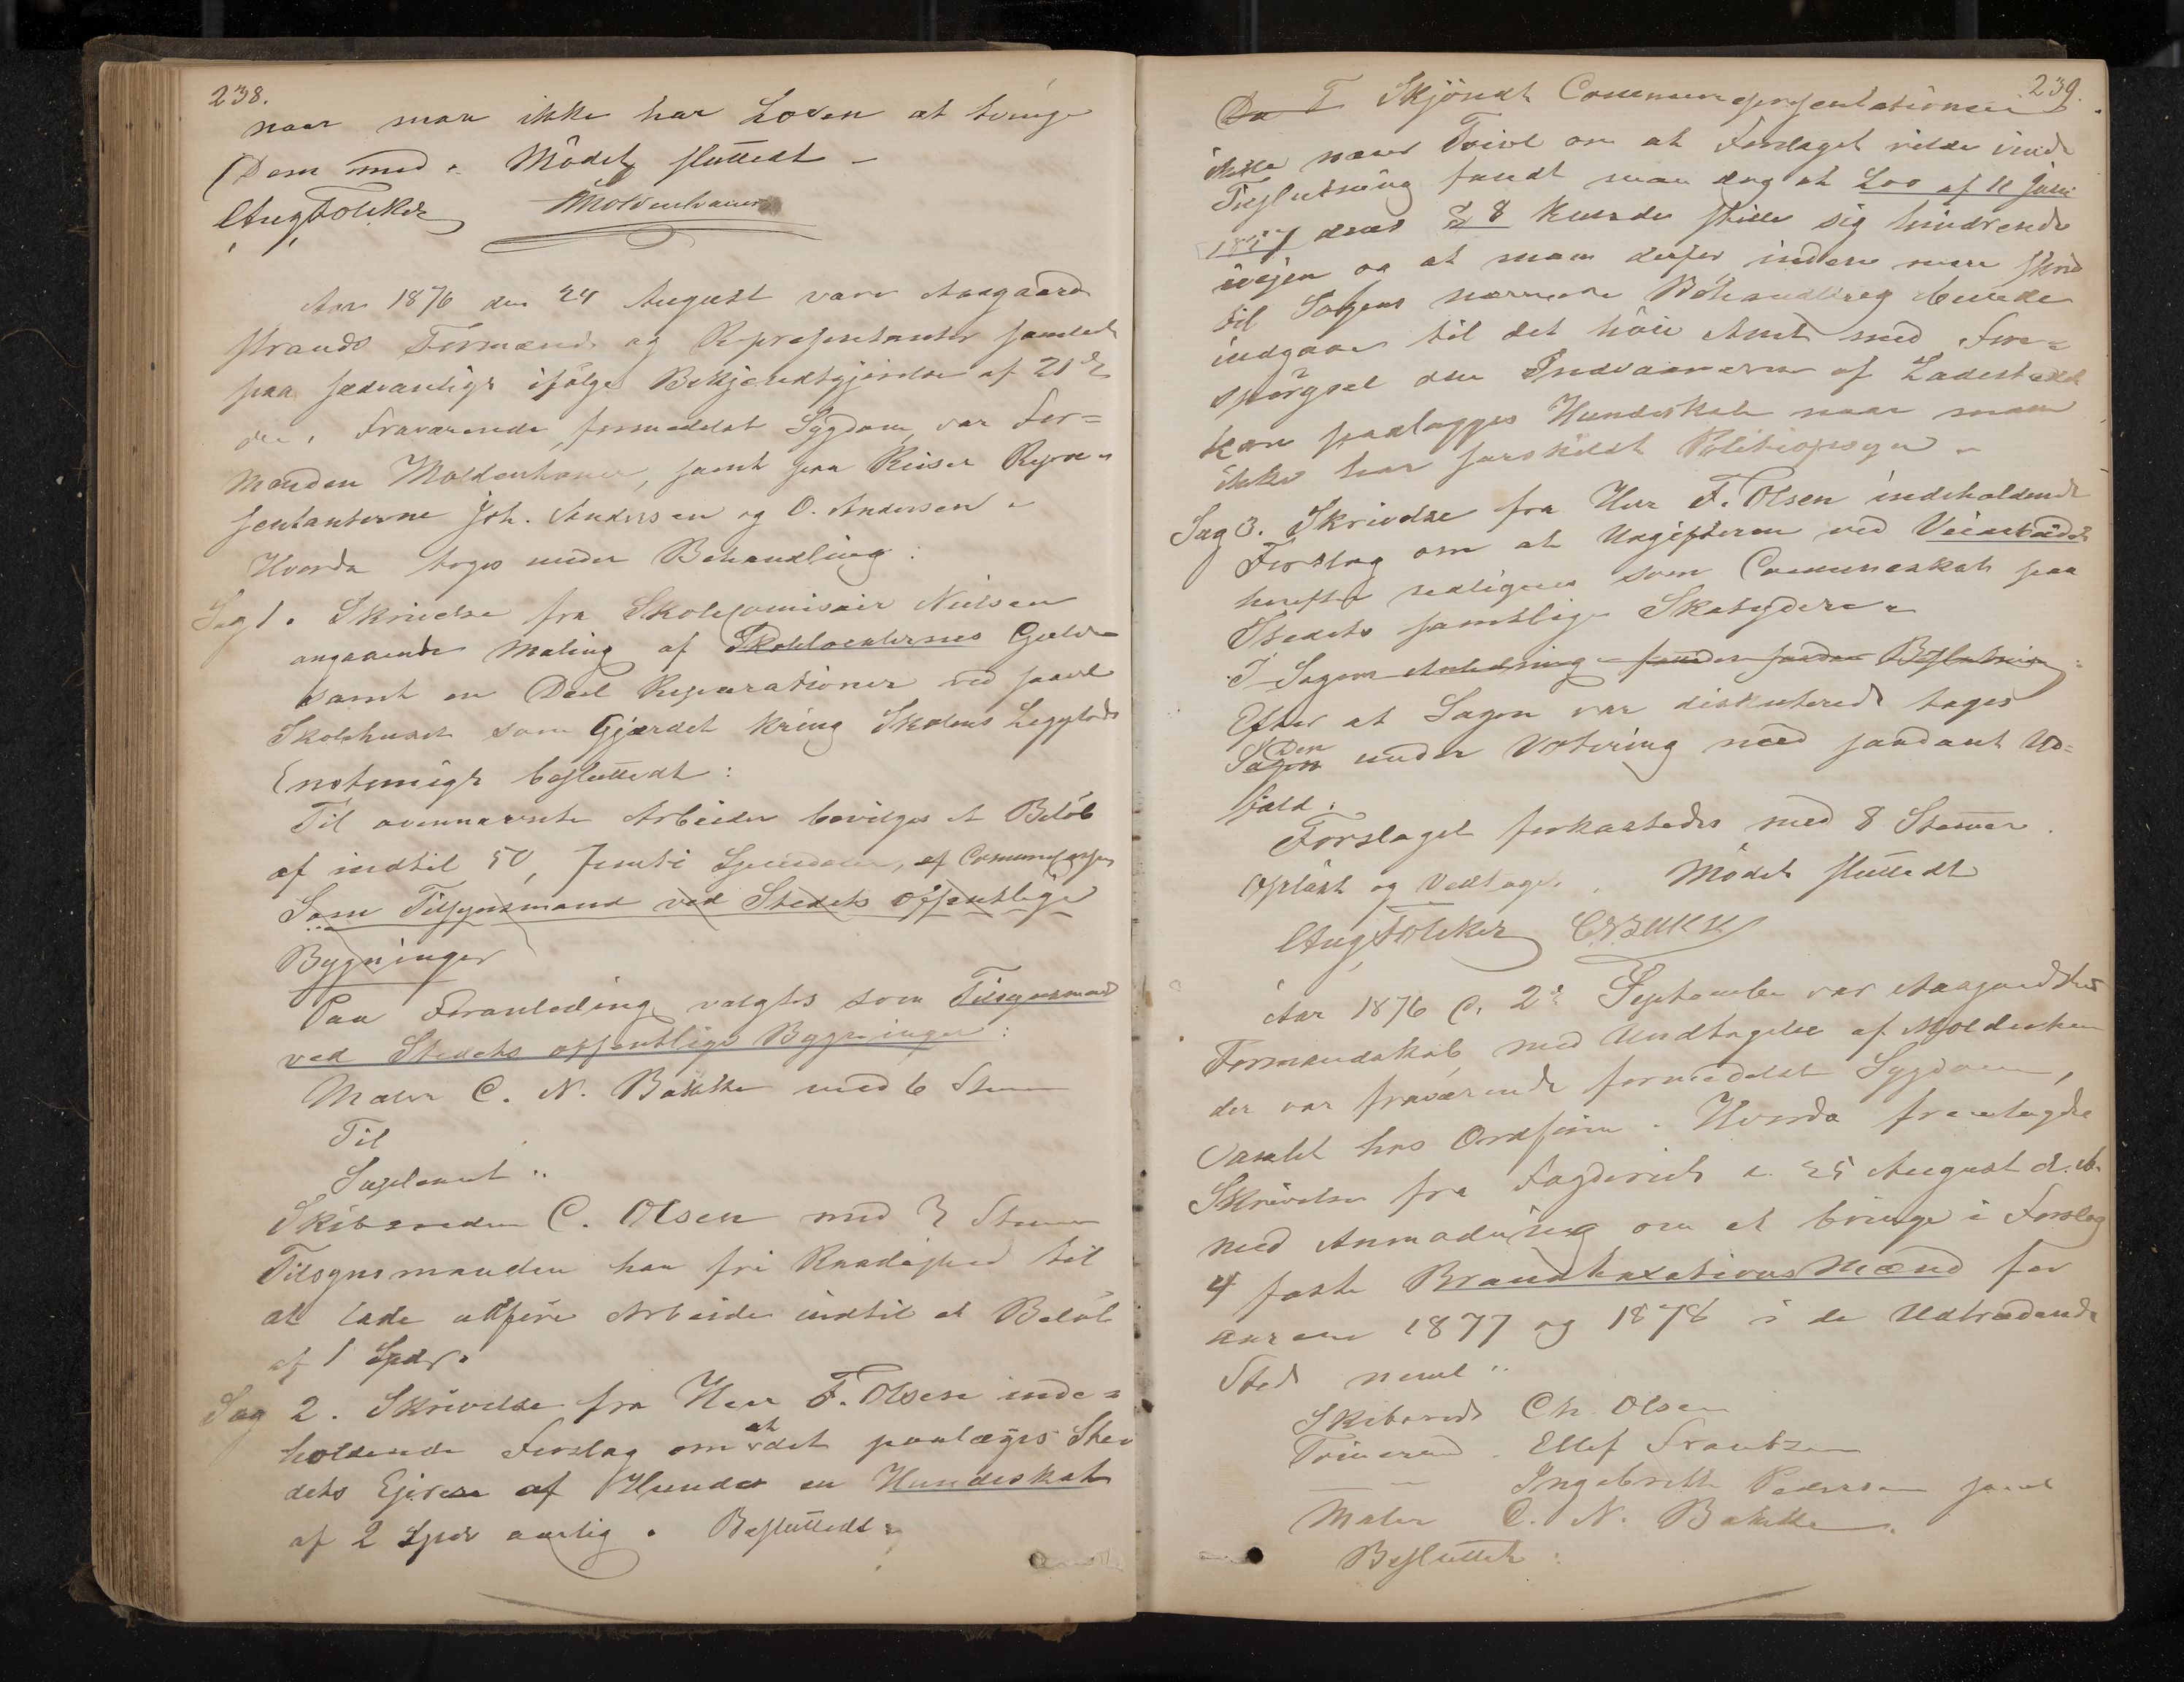 238.
naar man ikke har Loven at tvinge
Dem med. Mödet sluttedt -
Aug Foleker Moldenhauer
Aar 1876 den 24 August vare Aasgaard
strands Formænd og Repræsentanter samlet
paa sædvanligt ifölge Bekjendtgjörelse af 21de
ds. Fraværende formedelst Sygdom var For=
manden Moldenhauer, samt paa Reiser Repræ=
sentanterne Joh. Andersen og O. Andersen.
Hvorda toges under Behandling:
Sag 1. Skrivelse fra Skolecomisair Nielsen
angaaende Maling af Skolelocalernes Gulve
samt en Deel Reparationer ved saavel
Skolehuset som Gjærdet kring Skolens
Enstemigt besluttedt:
Til ovennævnte Arbeider bevilges et Belöb
af indtil 50, femti Speciedaler, af Comunekassen
Som Tilsynsmand ved Stedets offentlige
Bygninger
Paa Foranledning valgtes som Tilsynsmand
ved Stedets offentlige Bygninger:
Maler C. N. Bakke med 6 Stem
Til
Supleant:
Skibsreder C. Olsen med 3 Stemmer
Tilsynsmanden har fri Raadighed til
at lade udföre Arbeide indtil et Belöb
af 1 Spdr.
Sag 2. Skrivelse fra Herr F. Olsen inde=
holdende Forslag om at det paalægges Ste
dets Ejere af Hunde en Hundeskat
af 2 Spdr aarlig. Besluttedt:
239.
Da T Skjöndt Communerepræsentationen
ikke nærer Tvivl om at Forslaget vilde vinde
Tilslutning fandt man dog at Lov af 11 Juni
dens § 8 kunde stille sig hindrende
ivejen og at man derfor inden man skred
til Sagens nærmere Behandling burde
indgaa til det höie Amt med Fore=
spörgsel om Indvaanerne af Ladestedet
kan paalægges Hundeskat naar man
ikke har særskildt Politiopsyn.
Sag 3. Skrivelse fra Herr F. Olsen indeholdende
Forslag om at Udgifterne ved Veiarbeidet
herefter udlignes som Communeskat paa
Stedets samtlige Skatydere.
I Sagens Anledning Beslutning:
Efter at Sagen var diskuteredt toges
Den
Sagen under Votering med saadant Ud=
fald:
Forslaget forkastedes med 8 Stemer.
Oplæst og Vedtaget. Mödet sluttedt
Aug Foleker CNBakke
Aar 1876 d. 2de September var Aasgaardstrands
Formandskab, med Undtagelse af Moldenhauer
der var fraværende formedelst Sygdom,
samlet hos Ordförer. Hvorda fremlagdes
Skrivelse fra Fogderiet a 25 August d. A.
med Anmodning om at bringe i Forslag
4 faste Brandtaxations Mænd for
Aarene 1877 og 1878 i de Udtrædende
Sted neml:
Skibsreder Ch. Olsen
Tömmermd. Ellef Frantzen
— " — Ingebrikt Pedersen samt
Maler C. N. Bakke.
Besluttet: